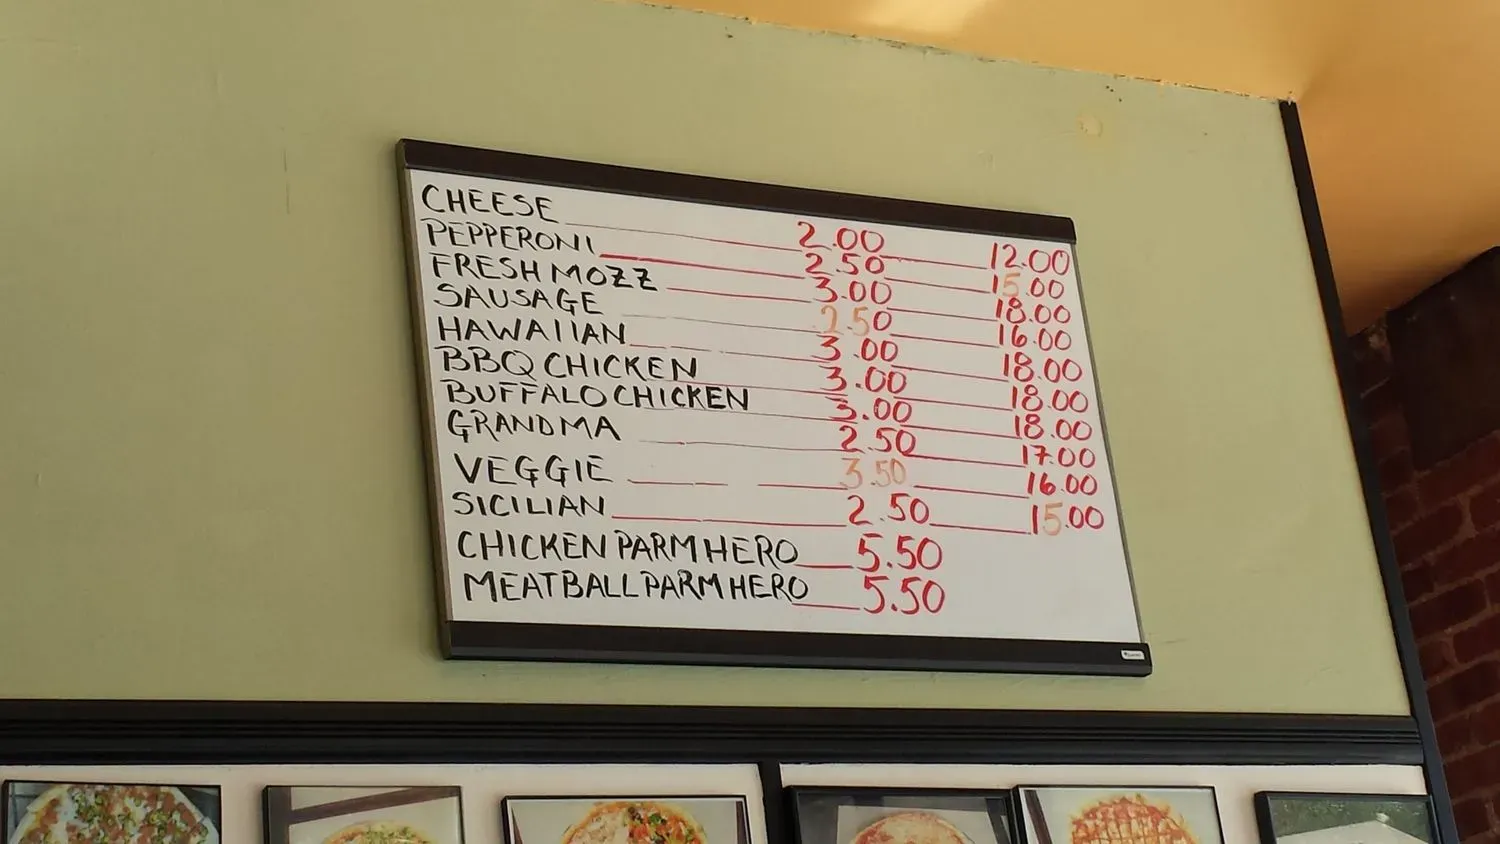 CHEESE 2.00 12.00
PEPPERONI 2.50 15.00
FRESH MOZZ 3.00 18.00
SAUSAGE 2.50 16.00
HAWAIIAN 3.00 18.00
BBQ CHICKEN 3.00 18.00
BUFFALO CHICKEN 3.00 18.00
GRANDMA 2.50 17.00
VEGGIE 3.50 16.00
SICILIAN 2.50 15.00
CHICKEN PARM HERO 5.50
MEATBALL PARM HERO 5.50